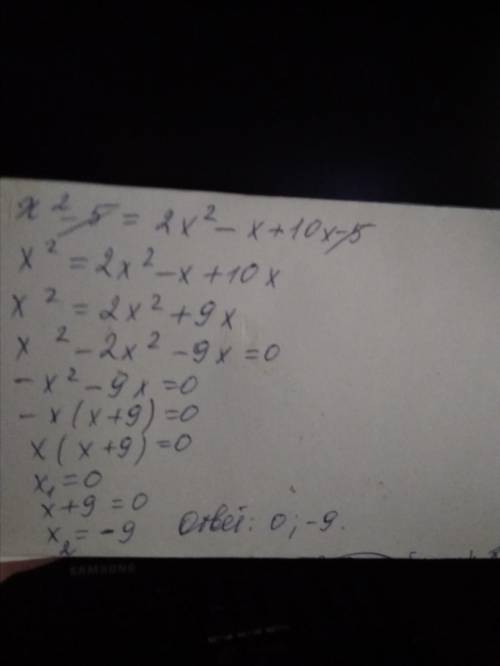 x² - 5 = 2x² - x + 10x - 5
x² = 2x² - x + 10x
x² = 2x² + 9x
x² - 2x² - 9x = 0
- x² - 9x = 0
- x (x + 9) = 0
x (x + 9) = 0
x₁ = 0
x + 9 = 0
x₂ = - 9 Ответ: 0; -9.
SAMSUNG